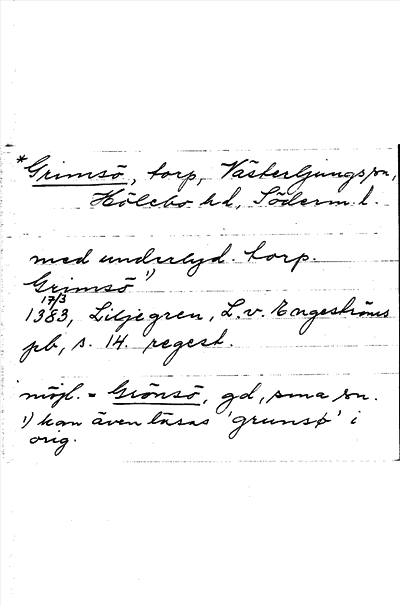 *Grimsö, torp, Västerljungs sn,
Hölebo hd, Söderm. l.
med underlyd. torp.
Grimsö 1)
1383 17/3, Liljegren, L. v. Engeströms
pb, s. 14. regest.
möjl. = Grönsö, gd, sma sn.
1) kan även läsas 'grunsø' i
orig.